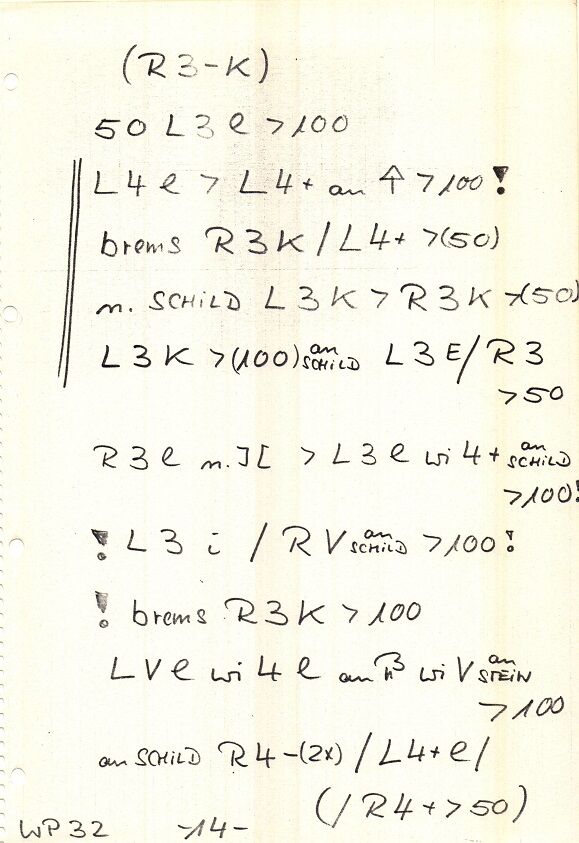 (R3-K)
50 L3e >100
L4e > L4+ an ↑ >100!
brems R3K / L4+ >(50)
n. SCHILD L3K > R3K >(50)
L3K >(100) an SCHILD L3E/R3
>50
R3e n. ][ > L3e wi 4+ an SCHILD
>100!
! L3 i / RV an SCHILD >100!
! brems R3K >100
LVe wi 4e an wi V an STEIN
>100
an SCHILD R4-(2x) / L4+e /
(/ R4+ >50)
WP32 -14-